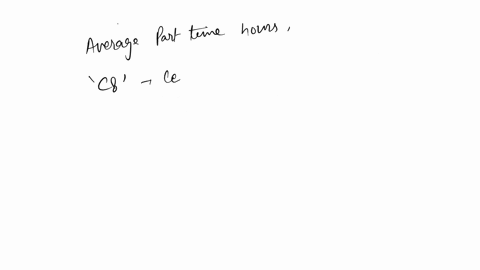 Average Part time hours,
'C8' → Ce